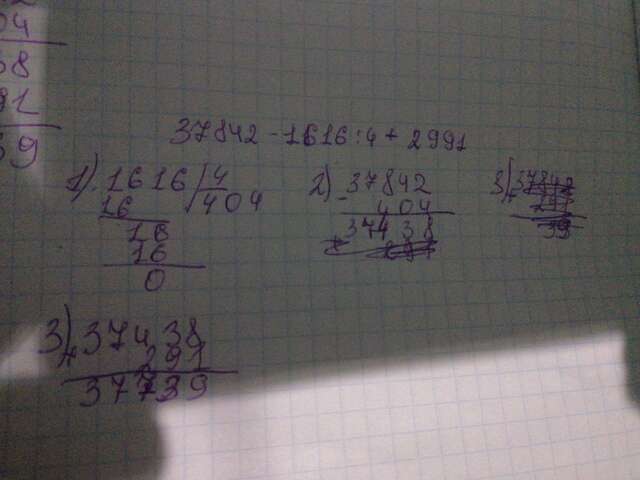 04
38
91
39
37842 - 1616 : 4 + 2991
1) 1616 | 4
16 404
16
16
0
2) - 37842
404
37438
3) + 37842
3) + 37438
291
37739